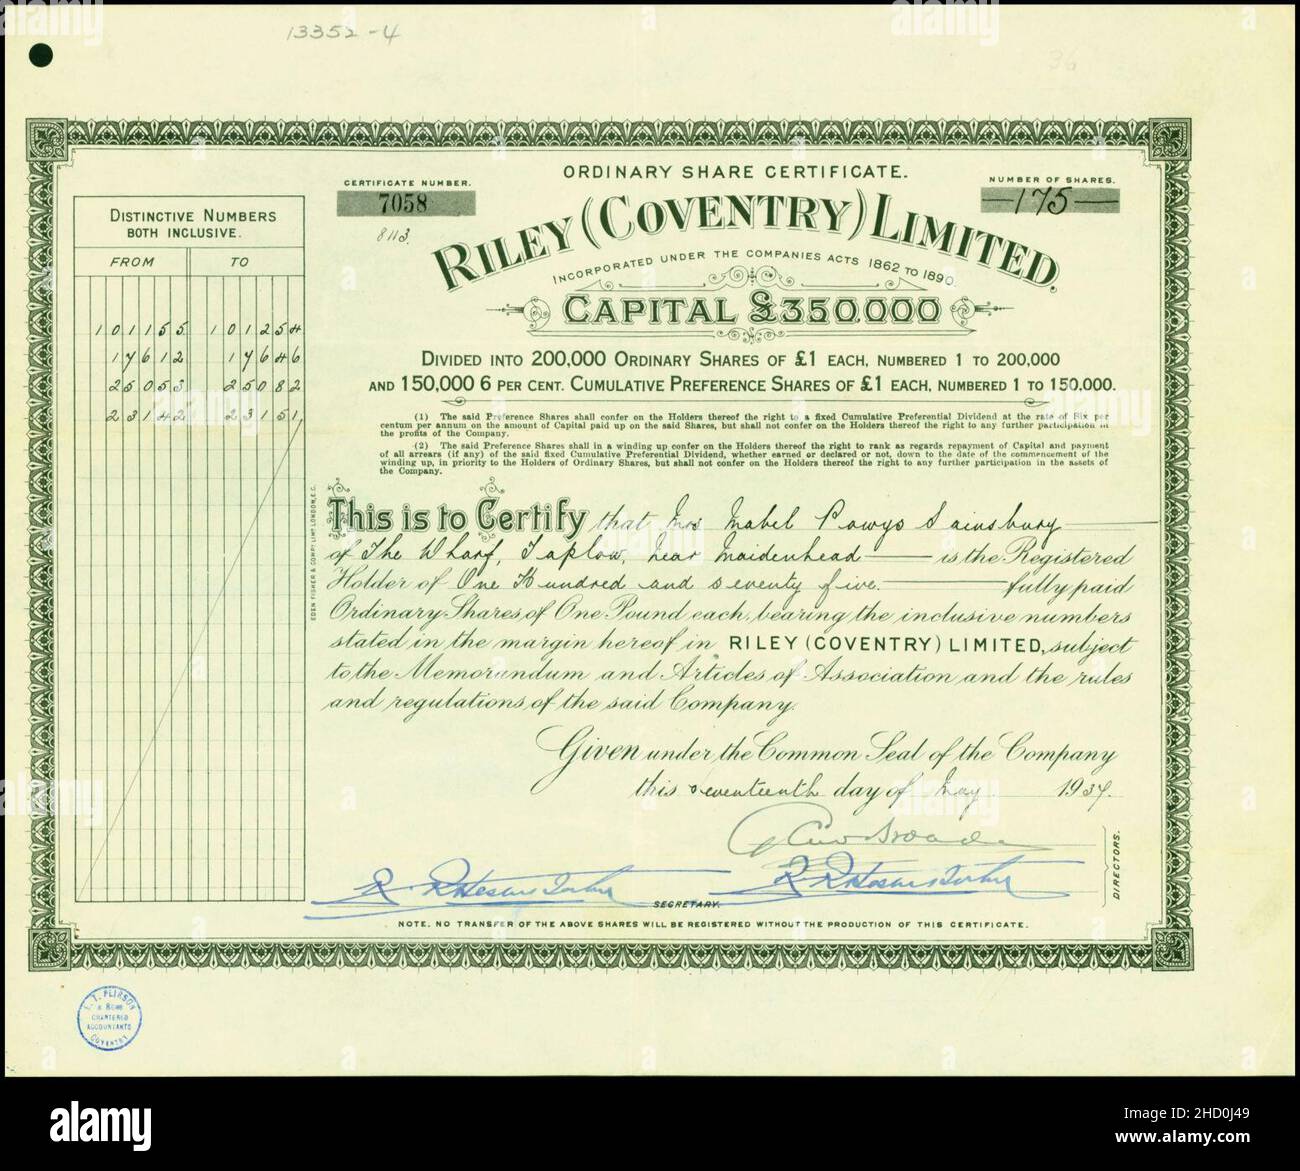 13352-4
36
ORDINARY SHARE CERTIFICATE.
CERTIFICATE NUMBER.
7058
8113
NUMBER OF SHARES.
175
RILEY (COVENTRY) LIMITED.
INCORPORATED UNDER THE COMPANIES ACTS 1862 TO 1890.
CAPITAL £350,000
DIVIDED INTO 200,000 ORDINARY SHARES OF £1 EACH, NUMBERED 1 TO 200,000
AND 150,000 6 PER CENT. CUMULATIVE PREFERENCE SHARES OF £1 EACH, NUMBERED 1 TO 150,000.
(1) The said Preference Shares shall confer on the Holders thereof the right to a fixed Cumulative Preferential Dividend at the rate of Six per
centum per annum on the amount of Capital paid up on the said Shares, but shall not confer on the Holders thereof the right to any further participation in
the profits of the Company.
(2) The said Preference Shares shall in a winding up confer on the Holders thereof the right to rank as regards repayment of Capital and payment
of all arrears (if any) of the said fixed Cumulative Preferential Dividend, whether earned or declared or not, down to the date of the commencement of the
winding up, in priority to the Holders of Ordinary Shares, but shall not confer on the Holders thereof the right to any further participation in the assets of
the Company.
DISTINCTIVE NUMBERS
BOTH INCLUSIVE.
FROM TO
101155 101254
17612 17646
25053 25082
23142 23151
EDEN FISHER & COMPY LIMD LONDON, E.C.
This is to Certify that Mrs Mabel Powys Sainsbury
of The Wharf, Taplow, near Maidenhead is the Registered
Holder of One Hundred and seventy five fully paid
Ordinary Shares of One Pound each, bearing the inclusive numbers
stated in the margin hereof in RILEY (COVENTRY) LIMITED, subject
to the Memorandum and Articles of Association and the rules
and regulations of the said Company.
Given under the Common Seal of the Company
this seventeenth day of May 1934.
DIRECTORS.
SECRETARY.
NOTE. NO TRANSFER OF THE ABOVE SHARES WILL BE REGISTERED WITHOUT THE PRODUCTION OF THIS CERTIFICATE.
E. T. PEIRSON
& SONS
CHARTERED
ACCOUNTANTS
COVENTRY
alamy
Image ID: 2HD0J49
www.alamy.com